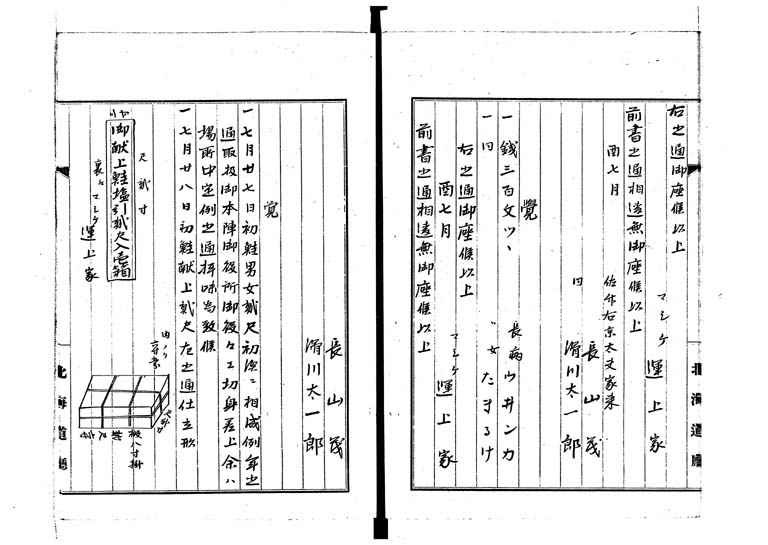 右之通御座候以上
マシケ 運上家
前書之通相違無御座候以上
酉七月
佐竹右京太夫家来
長山茂
同
滑川太一郎
覚
一 銭三百文ツヽ 長病ウヰンカ
一 同 〃女たまるけ
右之通御座候以上
酉七月
マシケ 運上家
前書之通相違無御座候以上
長山茂
滑川太一郎
覚
一 七月廿七日初鮭男女弐尺初漁ニ相成例年之
通取扱御本陣御役所御役々江切身差上余ハ
場所中定例之通拝味為致候
一 七月廿八日初鮭献上弐尺左之通仕立形
尺 弐寸
御献上鮭塩引弐尺入壱箱
裏ニマシケ 運上家
板八寸掛
北海道廳
北海道廳